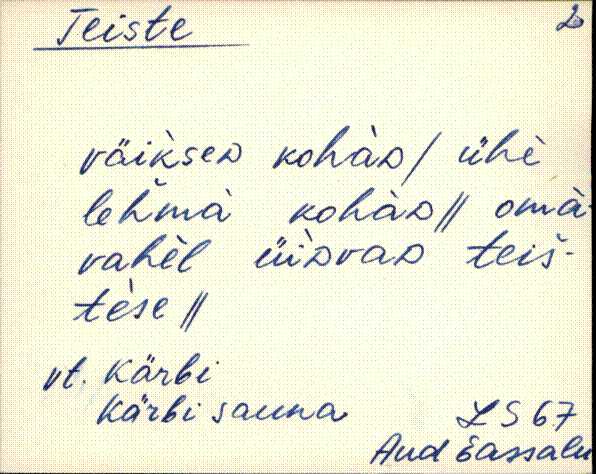 Teiste 2
väiksed kohàd / ühè
lehmà kohàd // omà-
vahèl üìdvad teis-
tèse //
vt. Kärbi
Kärbi sauna
LS 67
Aud Sassalu